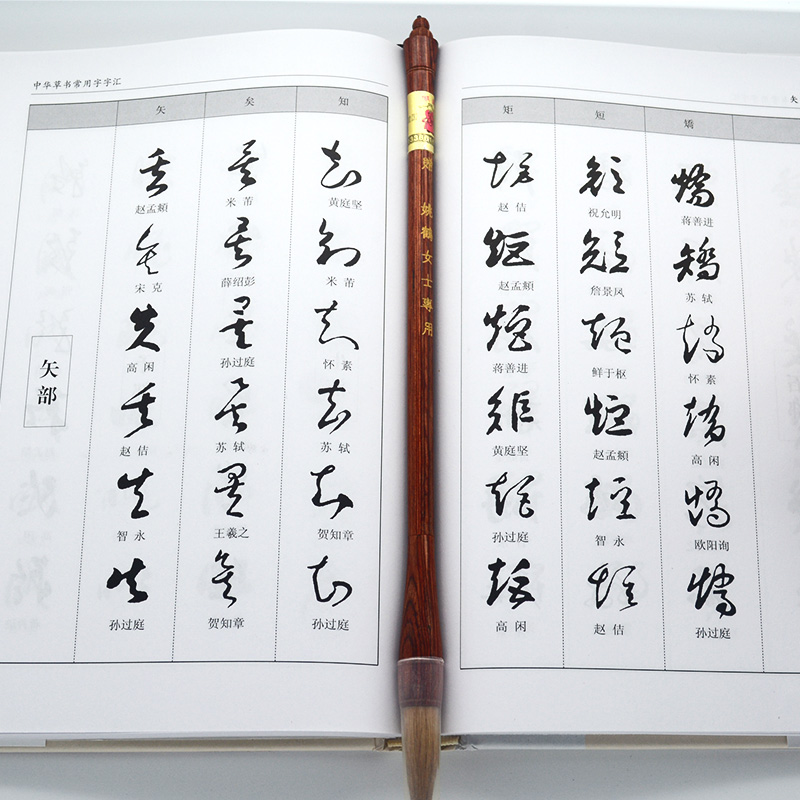 中华草书常用字字汇
矢 矣 知
矢部
赵孟頫 米芾 黄庭坚
宋克 薛绍彭 米芾
高闲 孙过庭 怀素
赵佶 苏轼 苏轼
智永 王羲之 贺知章
孙过庭 贺知章 孙过庭
赠 姚鹤女士專用
矢
矩 短 矯
赵佶 祝允明 蒋善进
赵孟頫 詹景凤 苏轼
蒋善进 鲜于枢 怀素
黄庭坚 赵孟頫 高闲
孙过庭 智永 欧阳询
高闲 赵佶 孙过庭